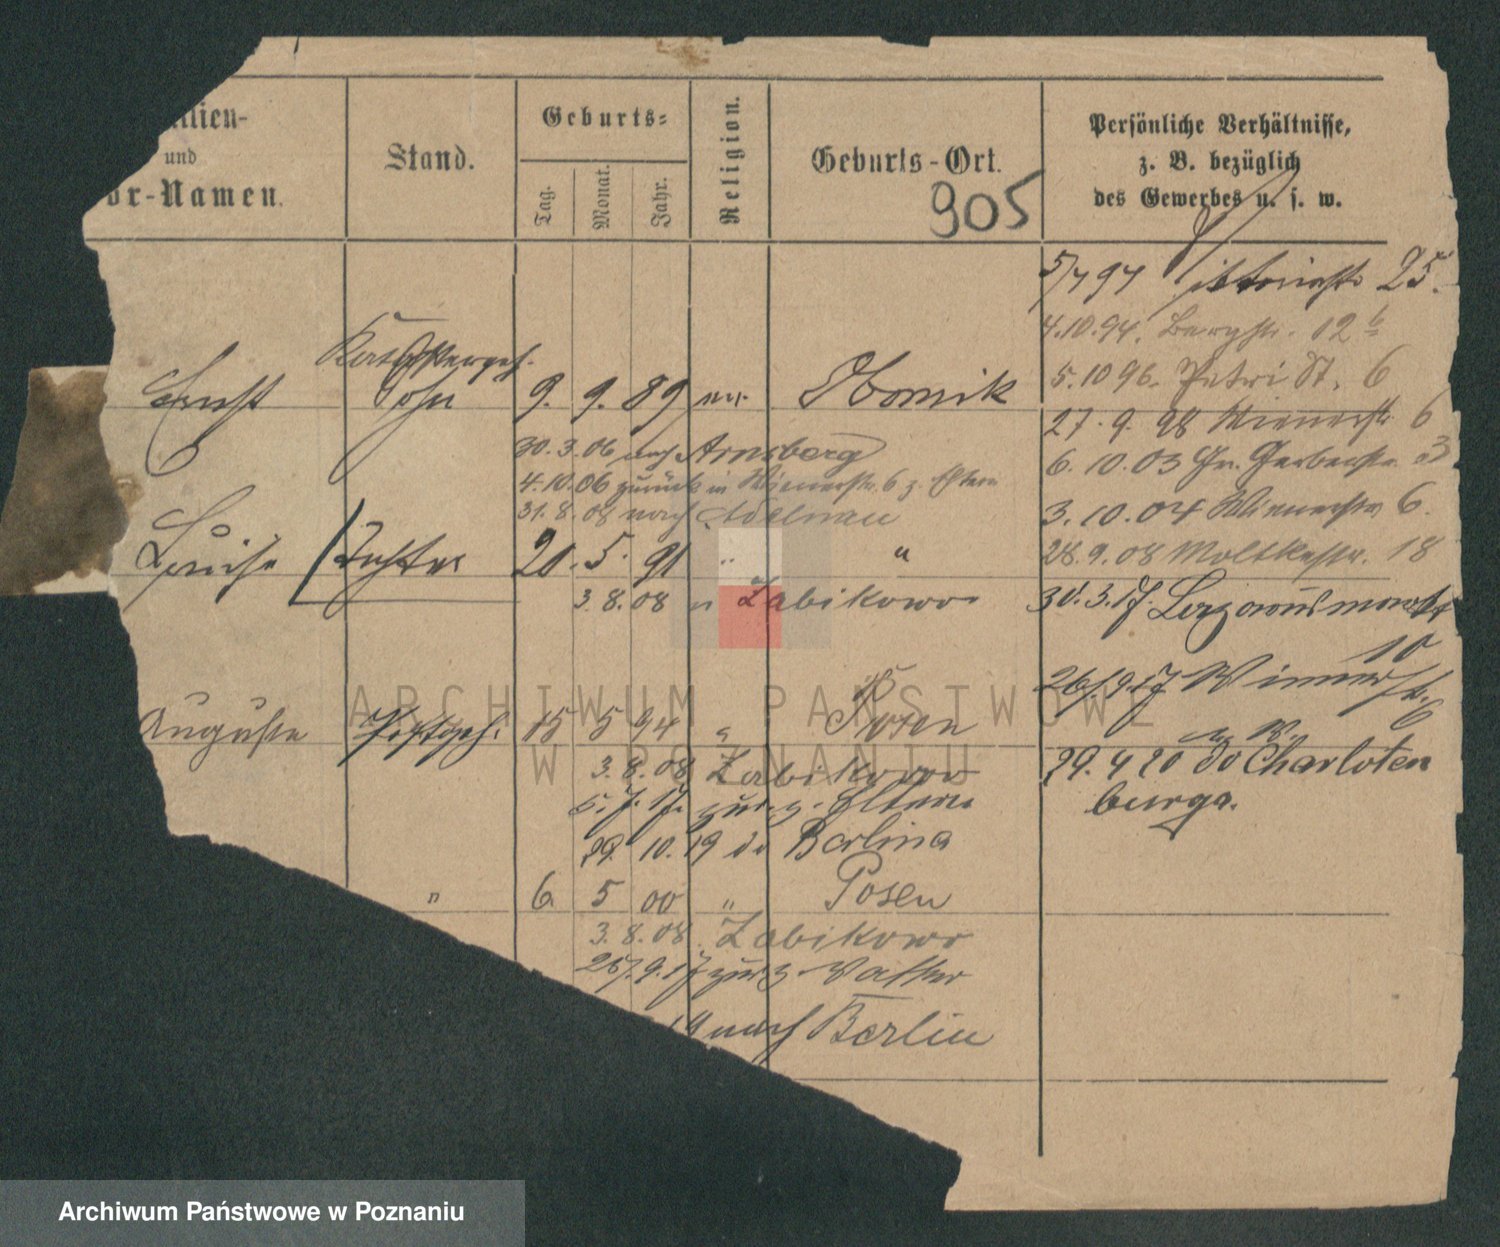 ilien-
und
or-Namen.
Stand.
Geburts-
Tag.
Monat.
Jahr.
Religion.
Geburts-Ort.
905
Persönliche Verhältnisse,
z. B. bezüglich
des Gewerbes u. s. w.
5/7 94 25.
4.10.94. Bergstr. 12 b
5.10 96. Petri St. 6
27. 9. 98 Wienerstr. 6
6. 10. 03 Gr. Gerberstr.
3. 10. 04 Wienerstr. 6.
28. 9. 08 Moltkestr. 18
30. 3. 17.
10
26/9.17 Wienerstr. 6
29. 4 20 do Charloten
burga.
Ernst Sohn 9. 9. 89 Obornik
30. 3. 06 nach Arnsberg
4.10.06 zurück in Wienerstr. 6 z. Eltern
31. 8. 08 nach Adelnau
Luise Tochter 20. 5. 91 " "
3. 8. 08 n Zabikowo
Auguste 15 5 94 " Posen
3. 8. 08 Zabikowo
5. 7. 17. zur. z. Eltern
29. 10. 19 do Berlina
" 6. 5 00 " Posen
3. 8. 08. Zabikowo
25/. 9. 17 zur. z. Vatter
19 nach Berlin
ARCHIWUM PAŃSTWOWE
W POZNANIU
Archiwum Państwowe w Poznaniu